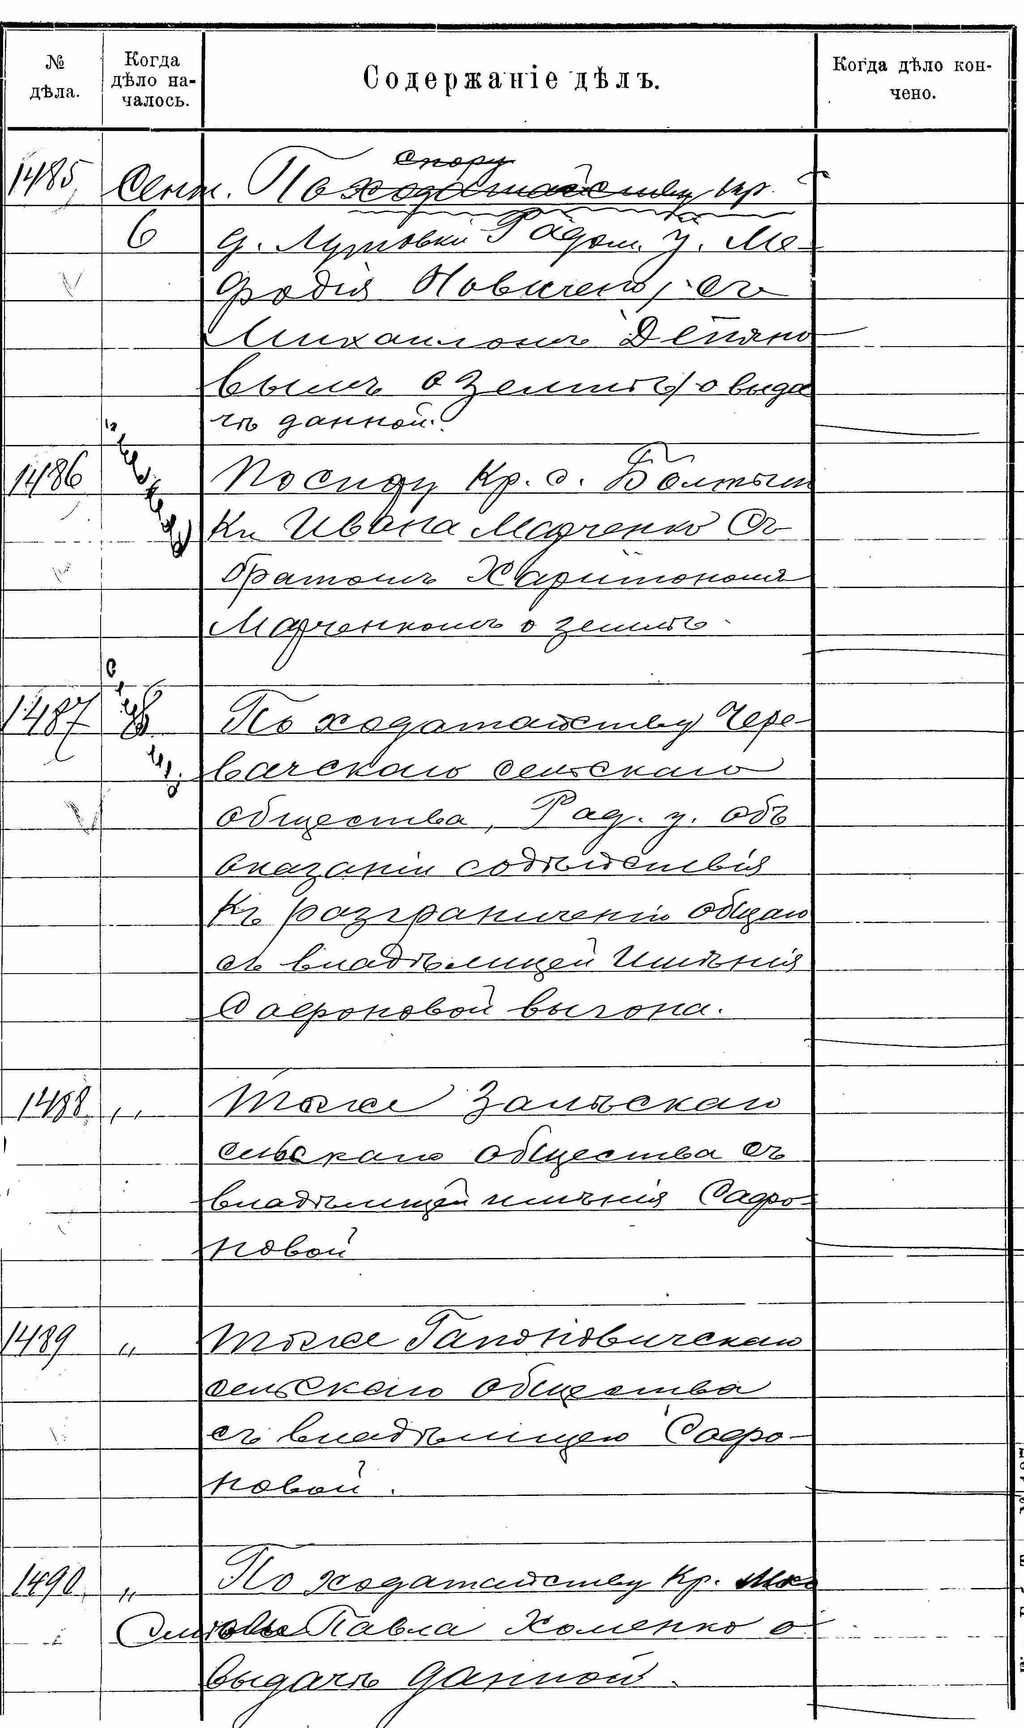 № дѣла.
Когда дѣло началось.
Содержаніе дѣлъ.
Когда дѣло кончено.
1485
Сент. 6
спору
По ходатайству кр.
д. Радом. у. Ме-
фодія Новичен съ
Михаиломъ
вымъ о землѣ о выда
чѣ данной.
1486
По спору кр. с. Болотни
Ивана Марченко съ
братомъ Харитономъ
Марченкомъ о землѣ.
1487
По ходатайству Чере-
вачскаго сельскаго
общества, Рад. у. объ
оказаніи содѣйствія
къ разграниченію общаго
съ владѣлицей имѣнія
Сафроновой выгона.
1488 „
тоже Залѣскаго
сельскаго общества съ
владѣлицей имѣнія Сафро-
новой
1489 „
тоже Гапоновичскаго
сельскаго общества
съ владѣлицею Сафро-
новой.
1490 „
По ходатайству кр.
Павла Хоменко о
выдачѣ данной.